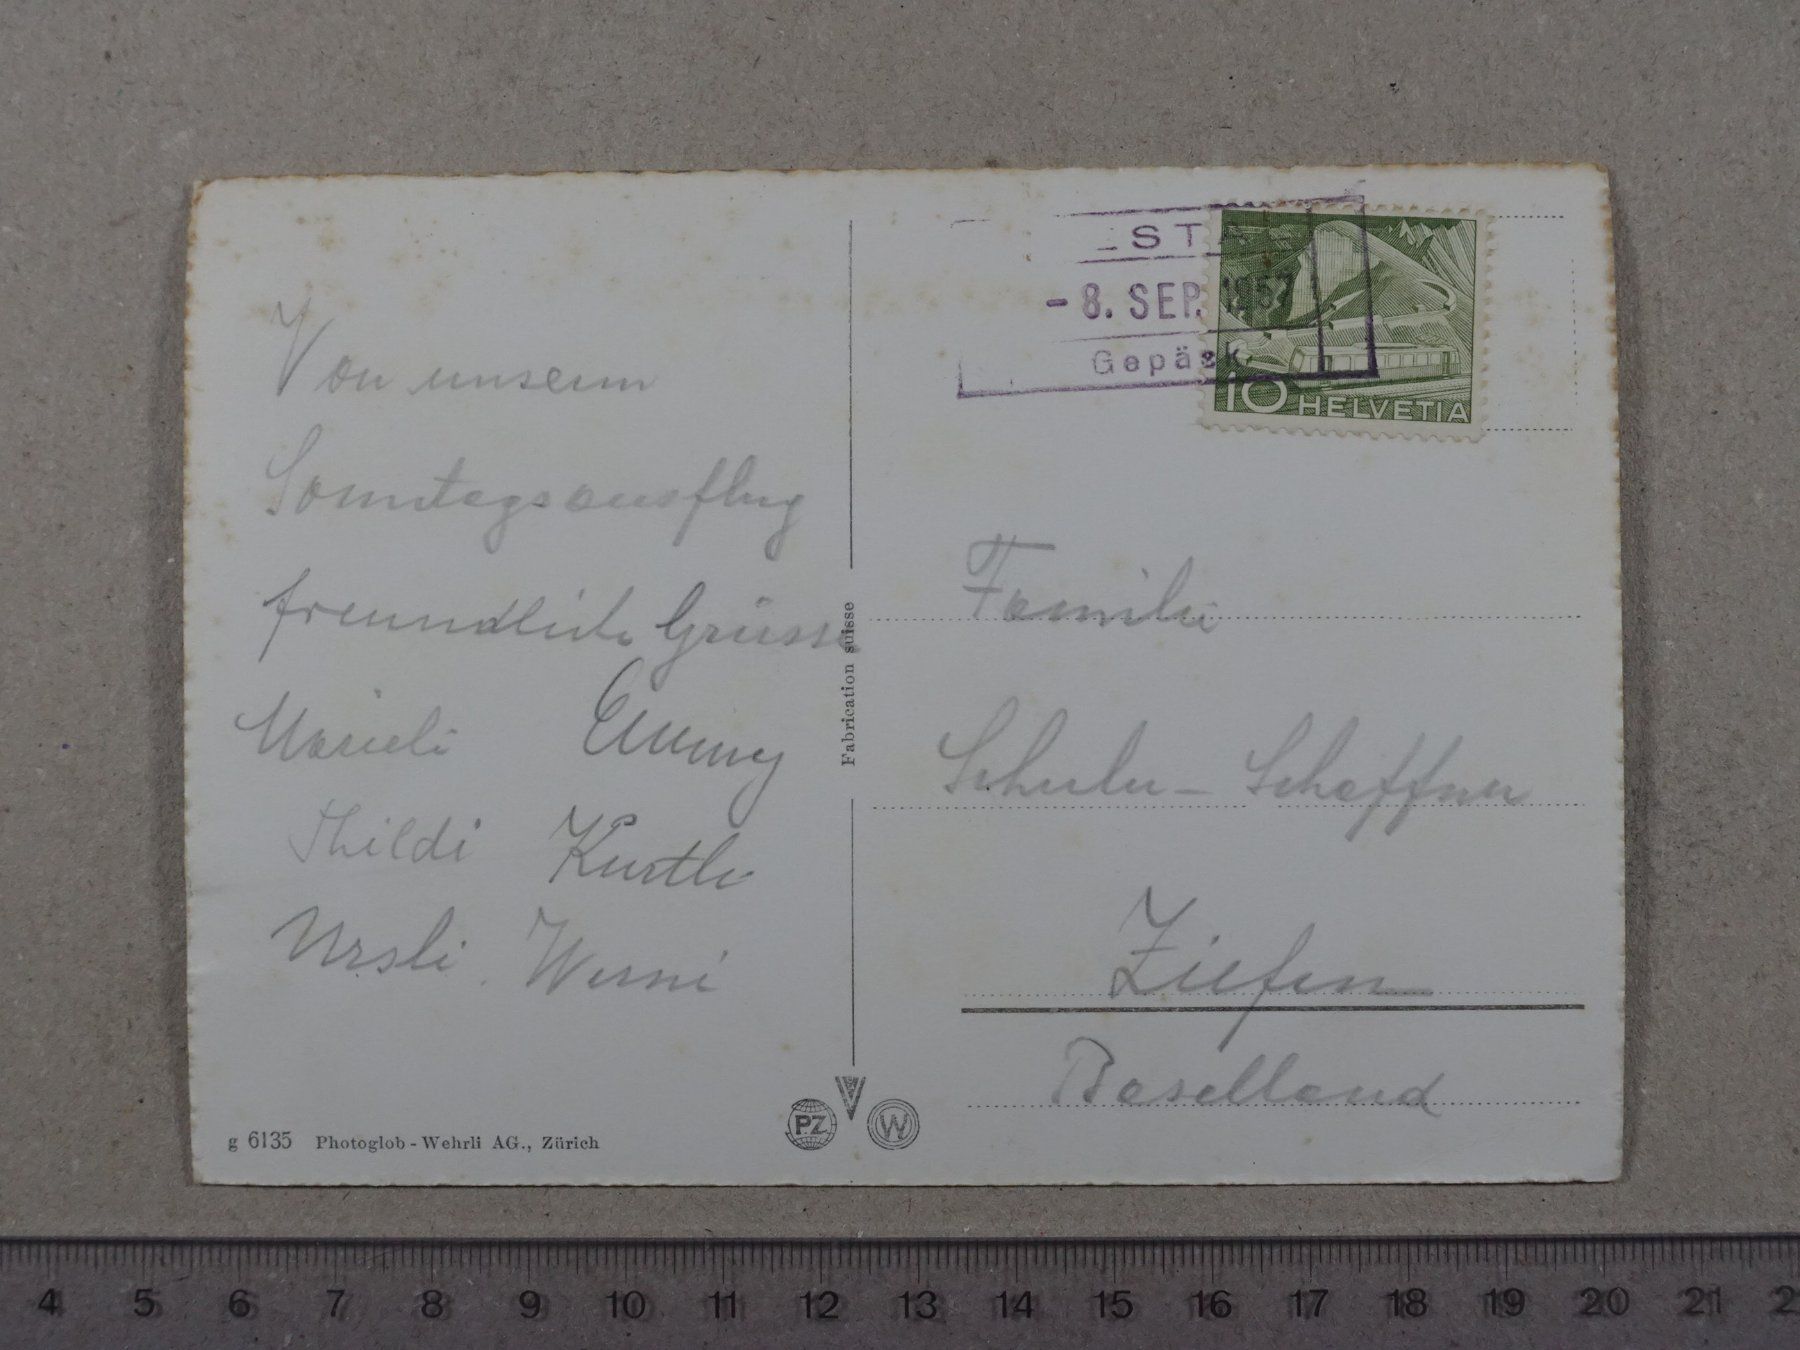 Von unserm
Sonntagsausflug
freundliche Grüsse
Marieli Emmy
Thildi Kurtli
Ursli Werni
g 6135 Photoglob - Wehrli AG., Zürich
Fabrication suisse
PZ W
- 8. SEP. 1957
Gepäck
10 HELVETIA
Familie
Schuler - Schaffner
Ziefen
Baselland
4 5 6 7 8 9 10 11 12 13 14 15 16 17 18 19 20 21